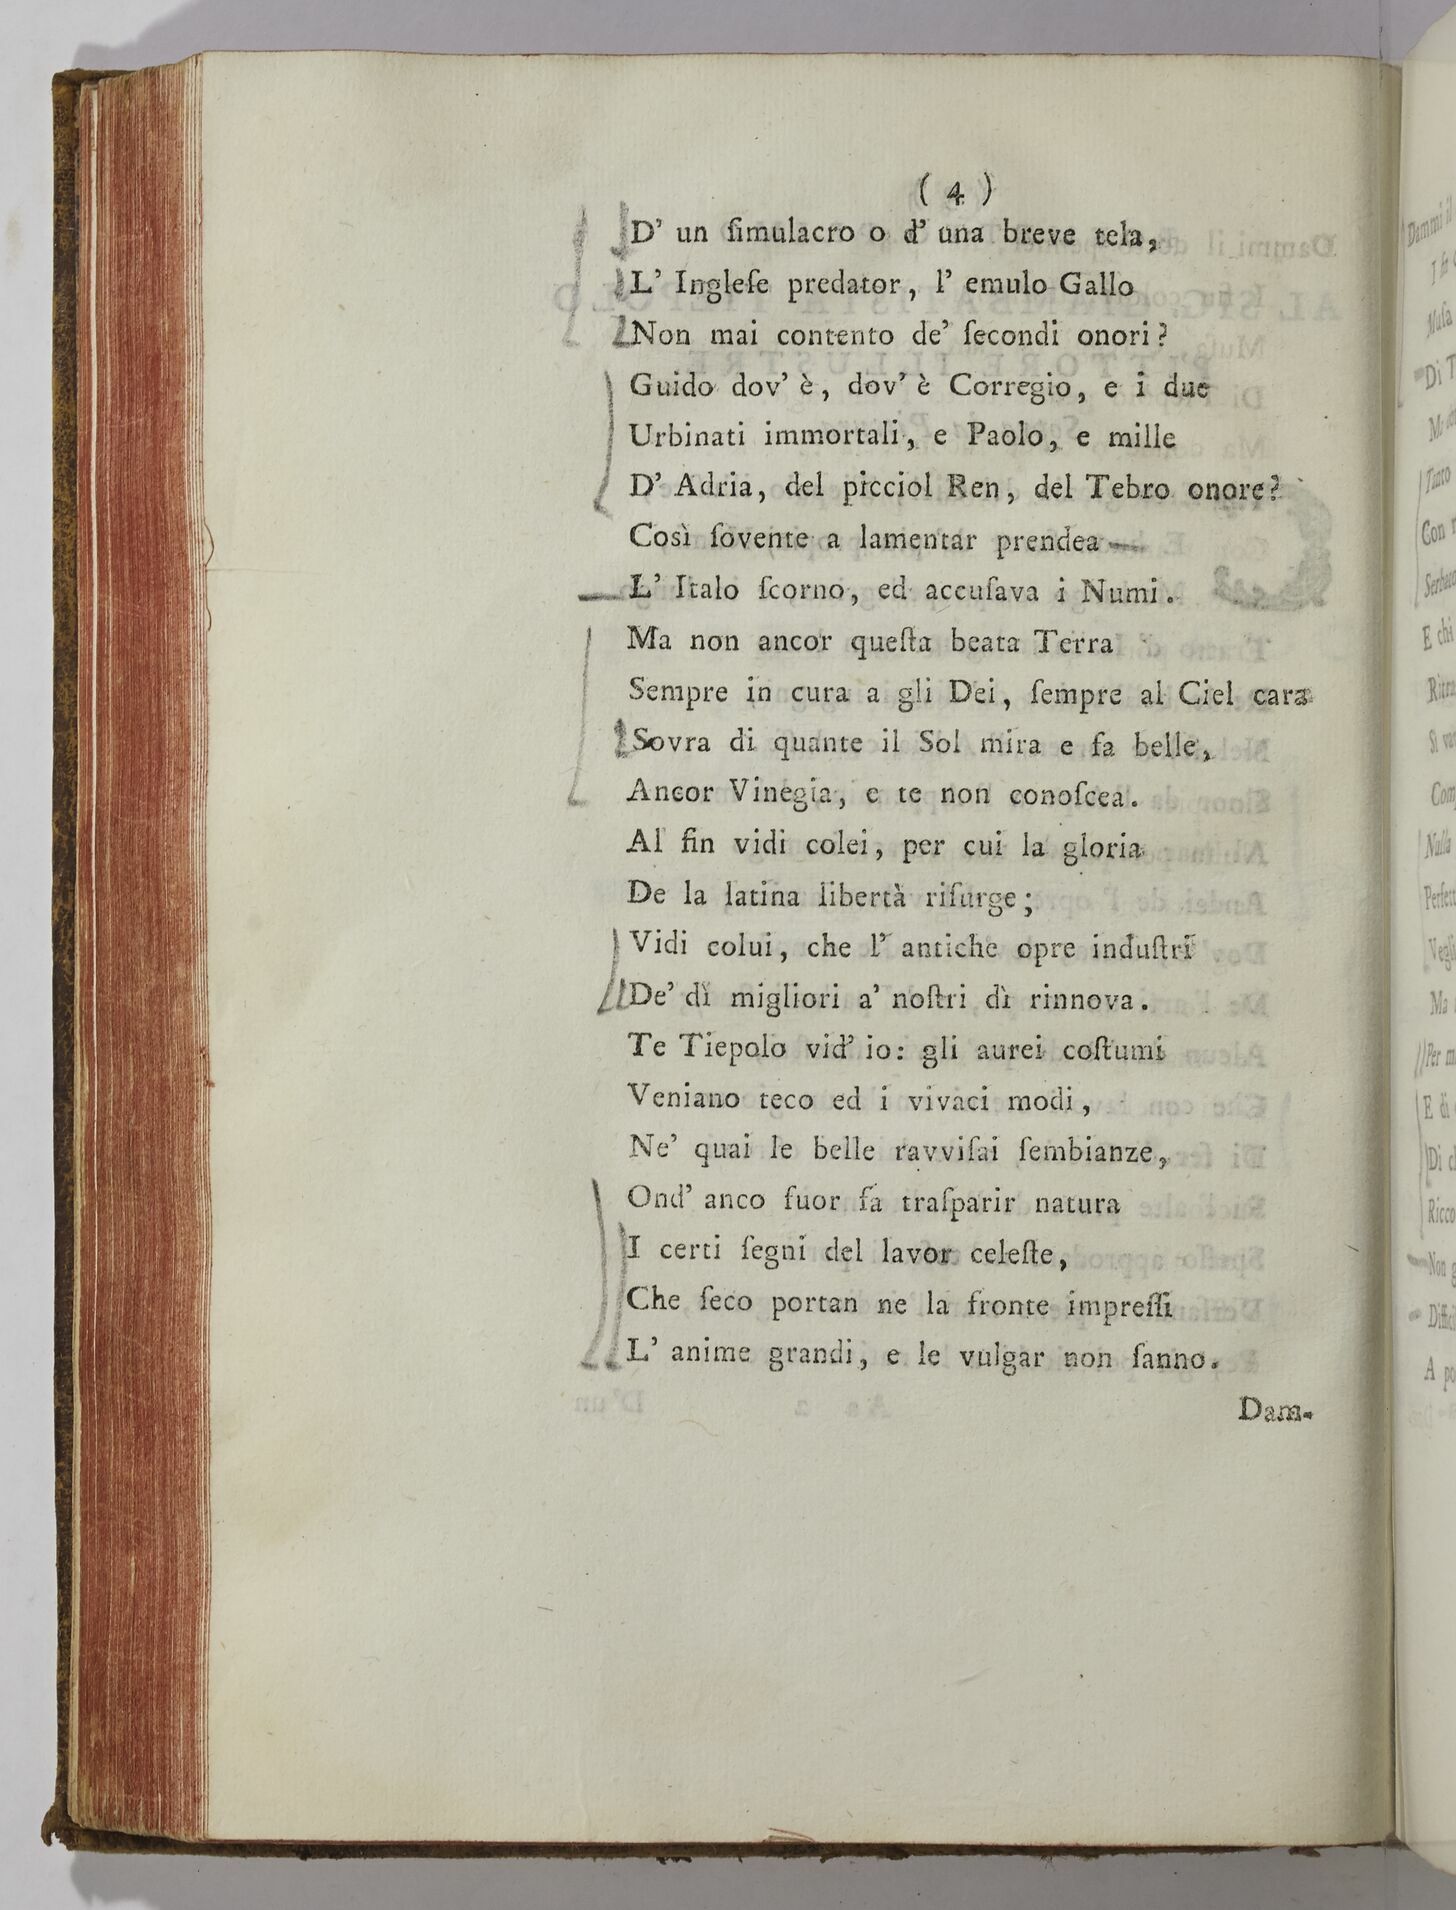 ( 4 )
D' un ſimulacro o d' una breve tela,
L' Ingleſe predator, l' emulo Gallo
Non mai contento de' ſecondi onori?
Guido dov' è, dov' è Corregio, e i due
Urbinati immortali, e Paolo, e mille
D' Adria, del picciol Ren, del Tebro onore?
Così ſovente a lamentar prendea
L' Italo ſcorno, ed accuſava i Numi.
Ma non ancor queſta beata Terra
Sempre in cura a gli Dei, ſempre al Ciel cara
Sovra di quante il Sol mira e fa belle,
Ancor Vinegia, e te non conoſcea.
Al fin vidi colei, per cui la gloria
De la latina libertà riſurge;
Vidi colui, che l' antiche opre induſtri
De' dì migliori a' noſtri dì rinnova.
Te Tiepolo vid' io: gli aurei coſtumi
Veniano teco ed i vivaci modi,
Ne' quai le belle ravviſai ſembianze,
Ond' anco fuor fa traſparir natura
I certi ſegni del lavor celeſte,
Che ſeco portan ne la fronte impreſſi
L' anime grandi, e le vulgar non ſanno.
Dam-